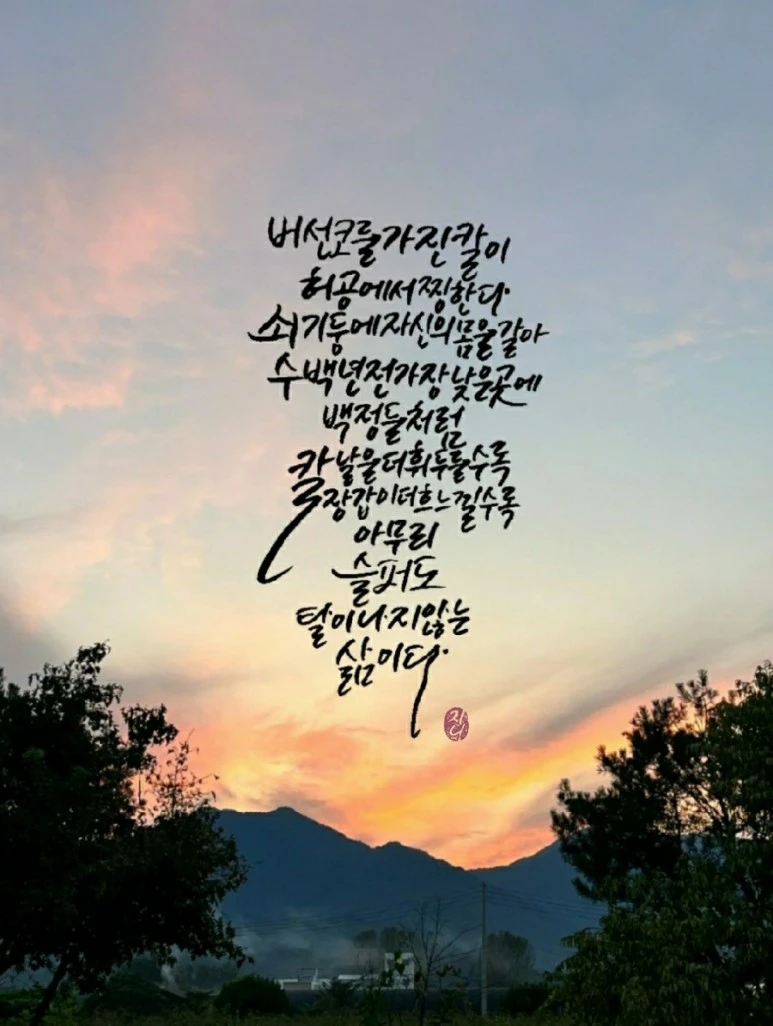 버선코를 가진 칼이
허공에서 찡한다.
쇠기둥에 자신의 몸을 갈아
수백년전 가장 낮은 곳에
백정들처럼
칼날을 더 휘두를수록
장갑이 더 흐느낄수록
아무리
슬퍼도
탈이 나지 않는
삶이다.
자니